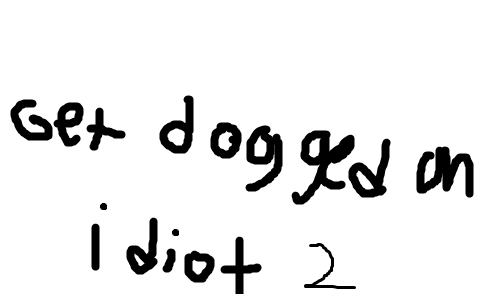 Get dogged on
idiot 2